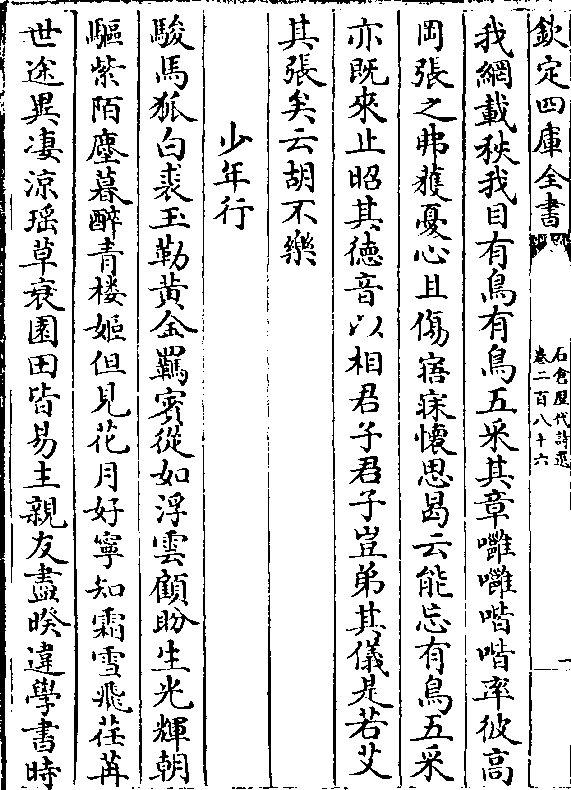 欽定四庫全書
石倉歷代詩選
卷二百八十六
我網載秧我目有鳥有鳥五采其章噰噰喈喈率彼高
岡張之弗獲憂心且傷寤寐懷思曷云能忘有鳥五采
亦既來止昭其德音以相君子君子豈弟其儀是若艾
其張矣云胡不樂
少年行
駿馬狐白裘玉勒黃金羈賓從如浮雲顧盼生光輝朝
驅紫陌塵暮醉青楼姬但見花月好寧知霜雪飛荏苒
世途異凄涼瑶草衰園田皆易主親友盡暌違學書時